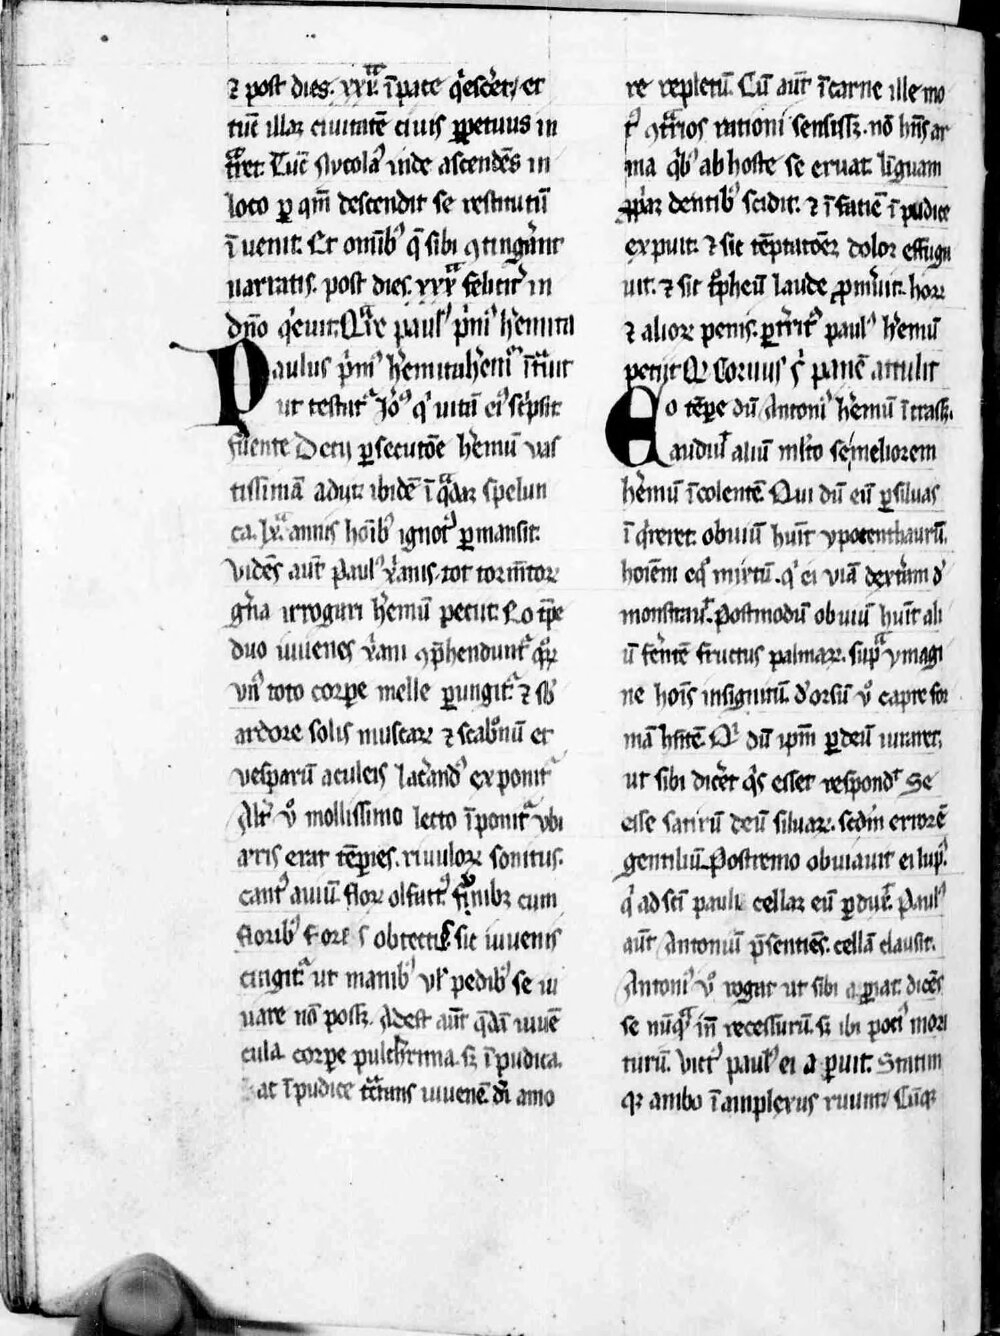 ⁊ post dies. xxxᵗᵃ. ī pace q̄escēt, et
tūc illaꝝ ciuitatē ciuis ꝑpetuus in
tͣret. Tūc Nycolaꝰ inde ascendēs in
loco ꝑ quē descendit se restitutū
īuenit. Et omībꝰ q̄ sibi ꝯtingerāt
narratis. post dies xxxᵃ felicit̄ in
dño q̄euit. Qͣre paulꝰ p̄mꝰ hēmita
Paulus p̄mꝰ hēmita hēmū īͭuit
ut testatᷣ Jōꝰ qͥ uitā eiꝰ scͥpsit
fuente Decii ꝑsecutōe hēmū vas
tissimā adut. ibidē ī qͣdaꝫ spelun
ca. lxͣ. annis hoībꝰ ignotꝰ ꝑmansit.
Vidēs aūt paulꝰ xͥanis. tot tormētoꝝ
gña irrogari hēmū petut. Eo tꝑe
duo iuuenes xͥani ꝯp̄henduntᷣ qͦꝝ
vnꝰ toto corꝑe melle ꝑungitᷣ. ⁊ sb̄
ardore solis muscaꝝ ⁊ scabͦnū et
vesparū aculeis laceͬandꝰ exponitᷣ
Alt̄ vͦ mollissimo lecto īponitᷣ vbi
aeris erat tēꝑies. riuuloꝝ sonitus.
cantꝰ auiū. floꝝ olfactꝰ. funibꝫ cum
floribꝰ obtectis sic iuuenis
cingitᷣ ut manibꝰ vł pedibꝰ se iu
uare nō possꝫ. Adest aūt qͣdā iuuē
cula corꝑe pulcherrima. sꝫ īpudica.
at īpudice tͣctans iuuenē dī amo
re repletū. Cū aūt ī carne ille mo
tꝰ ꝯtͣrios rationi sensissꝫ. nō hn̄s ar
ma qͥbꝰ ab hoste se eruat. liguam
ꝓpͥaꝫ dentibꝰ scidit. ⁊ ī faciē īpudice
expuit. ⁊ sic tēptatōeꝫ dolor effuga
uit. ⁊ sic tͦpheū laude ꝓmͥuit. hoꝝ
⁊ alioꝝ penis. ꝑtͥritꝰ paulꝰ hēmū
petijt Qͩ Coruus sͥ panē attulit
Eo tēꝑe dū Antoniꝰ hēmū ītrassꝫ.
audiuit aliū mlto se meliorem
hēmū īcolentē Qui dū eū ꝑ siluas
ī qͥreret. obuiū huīt ypocenthaurū.
hoīem eqͦ mixtū. qͥ ei viā dexteͬam dͤ
monstrauͭ. Postmodū obuiū huīt ali
ū feͬntē fructus palmaꝝ. supͣ ymagi
ne hoīs insignitū. dͤorsū vͦ capre for
mā hn̄tē. Qͩ dū ipm̄ ꝑ deū iuraret.
ut sibi dicēt qͥs esset respondͭ Se
esse satirū deū siluaꝝ. scdm̄ errorē
gentiliū. Postremo obuiauit ei lupꝰ.
qͥ ad sc̄i pauli cellaꝫ eū ꝑduxͭ. Paulꝰ
aūt Antoniū p̄sentiēs. cellā clausit.
Antoniꝰ vͦ rogat ut sibi aꝑiat. dicēs
se nūqͣ īn recessurū. sꝫ ibi potiꝰ mori
turū. Victꝰ paulꝰ ei aꝑuit. Statim
qꝫ ambo ī amplexus ruunt. Cūqꝫ